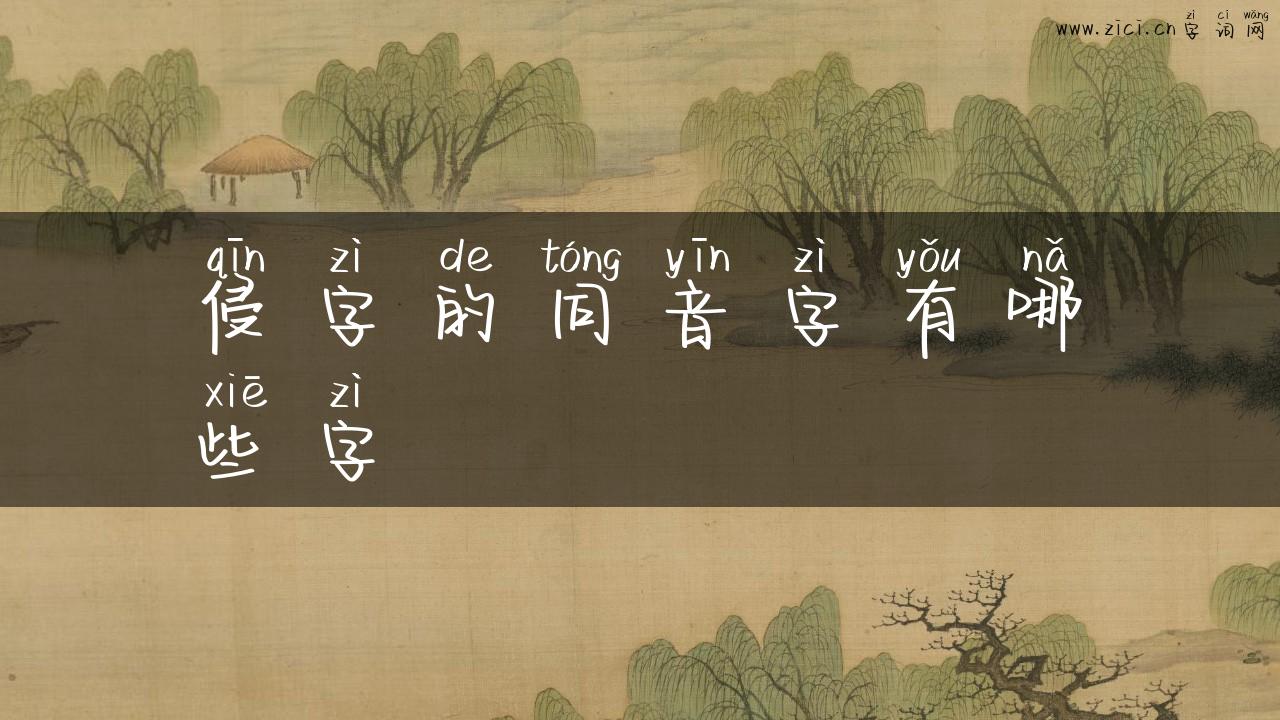 zì cí wǎng
www.zici.cn 字 词 网
qīn zì de tóng yīn zì yǒu nǎ
侵 字 的 同 音 字 有 哪
xiē zì
些 字